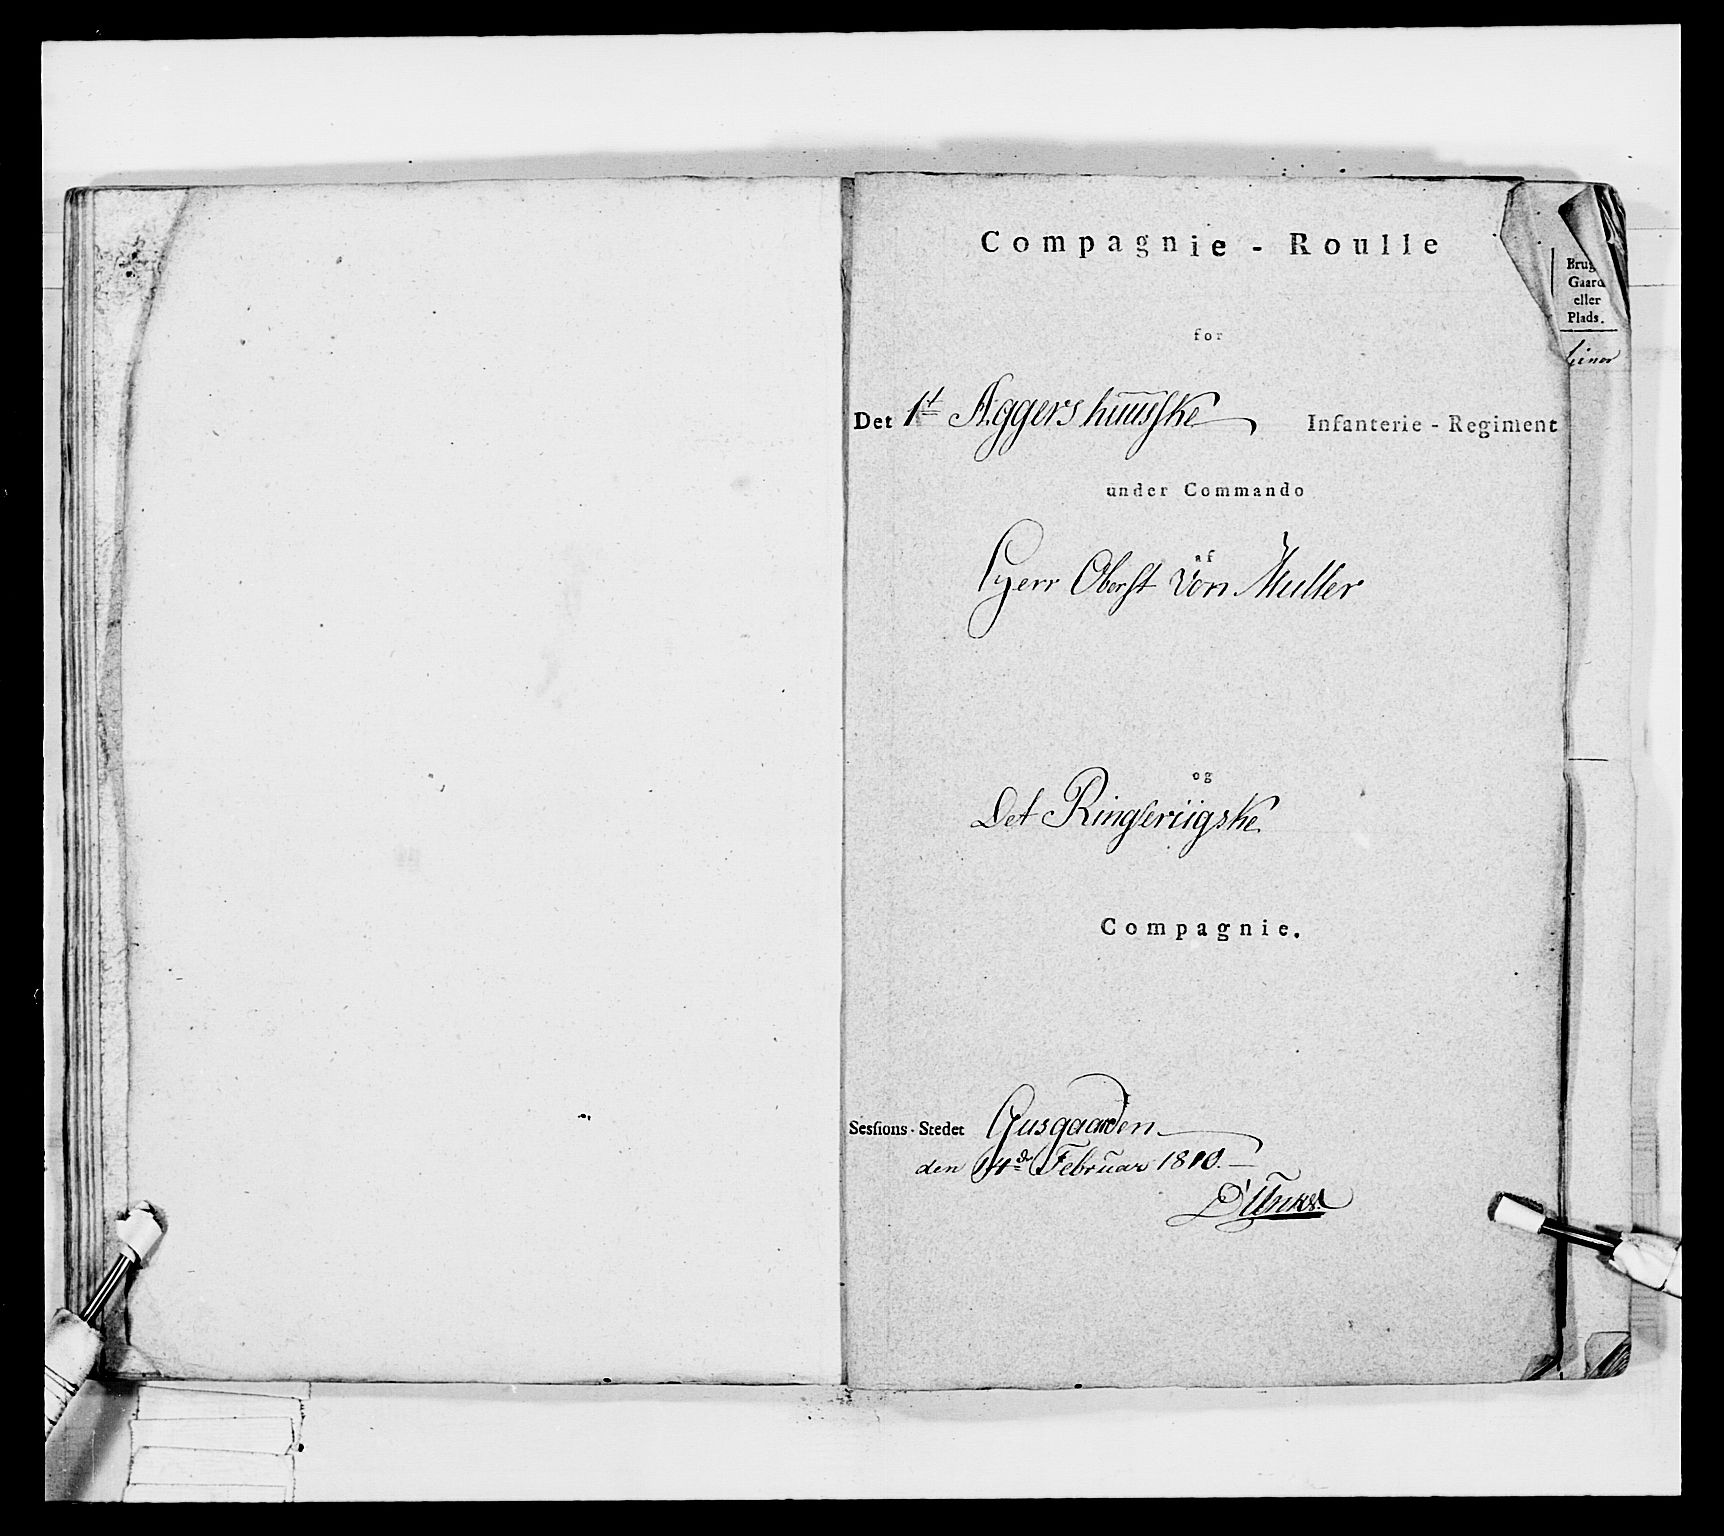 Compagnie - Roulle
for
Det 1t Aggershuusske Infanterie - Regiment
under Commando
af
Herr Oberst von Muller
og
Det Ringeriigske
Compagnie.
Sessions - Stedet Gusgaarden
den 14de Februar 1810.
Gaard
eller
Plads.